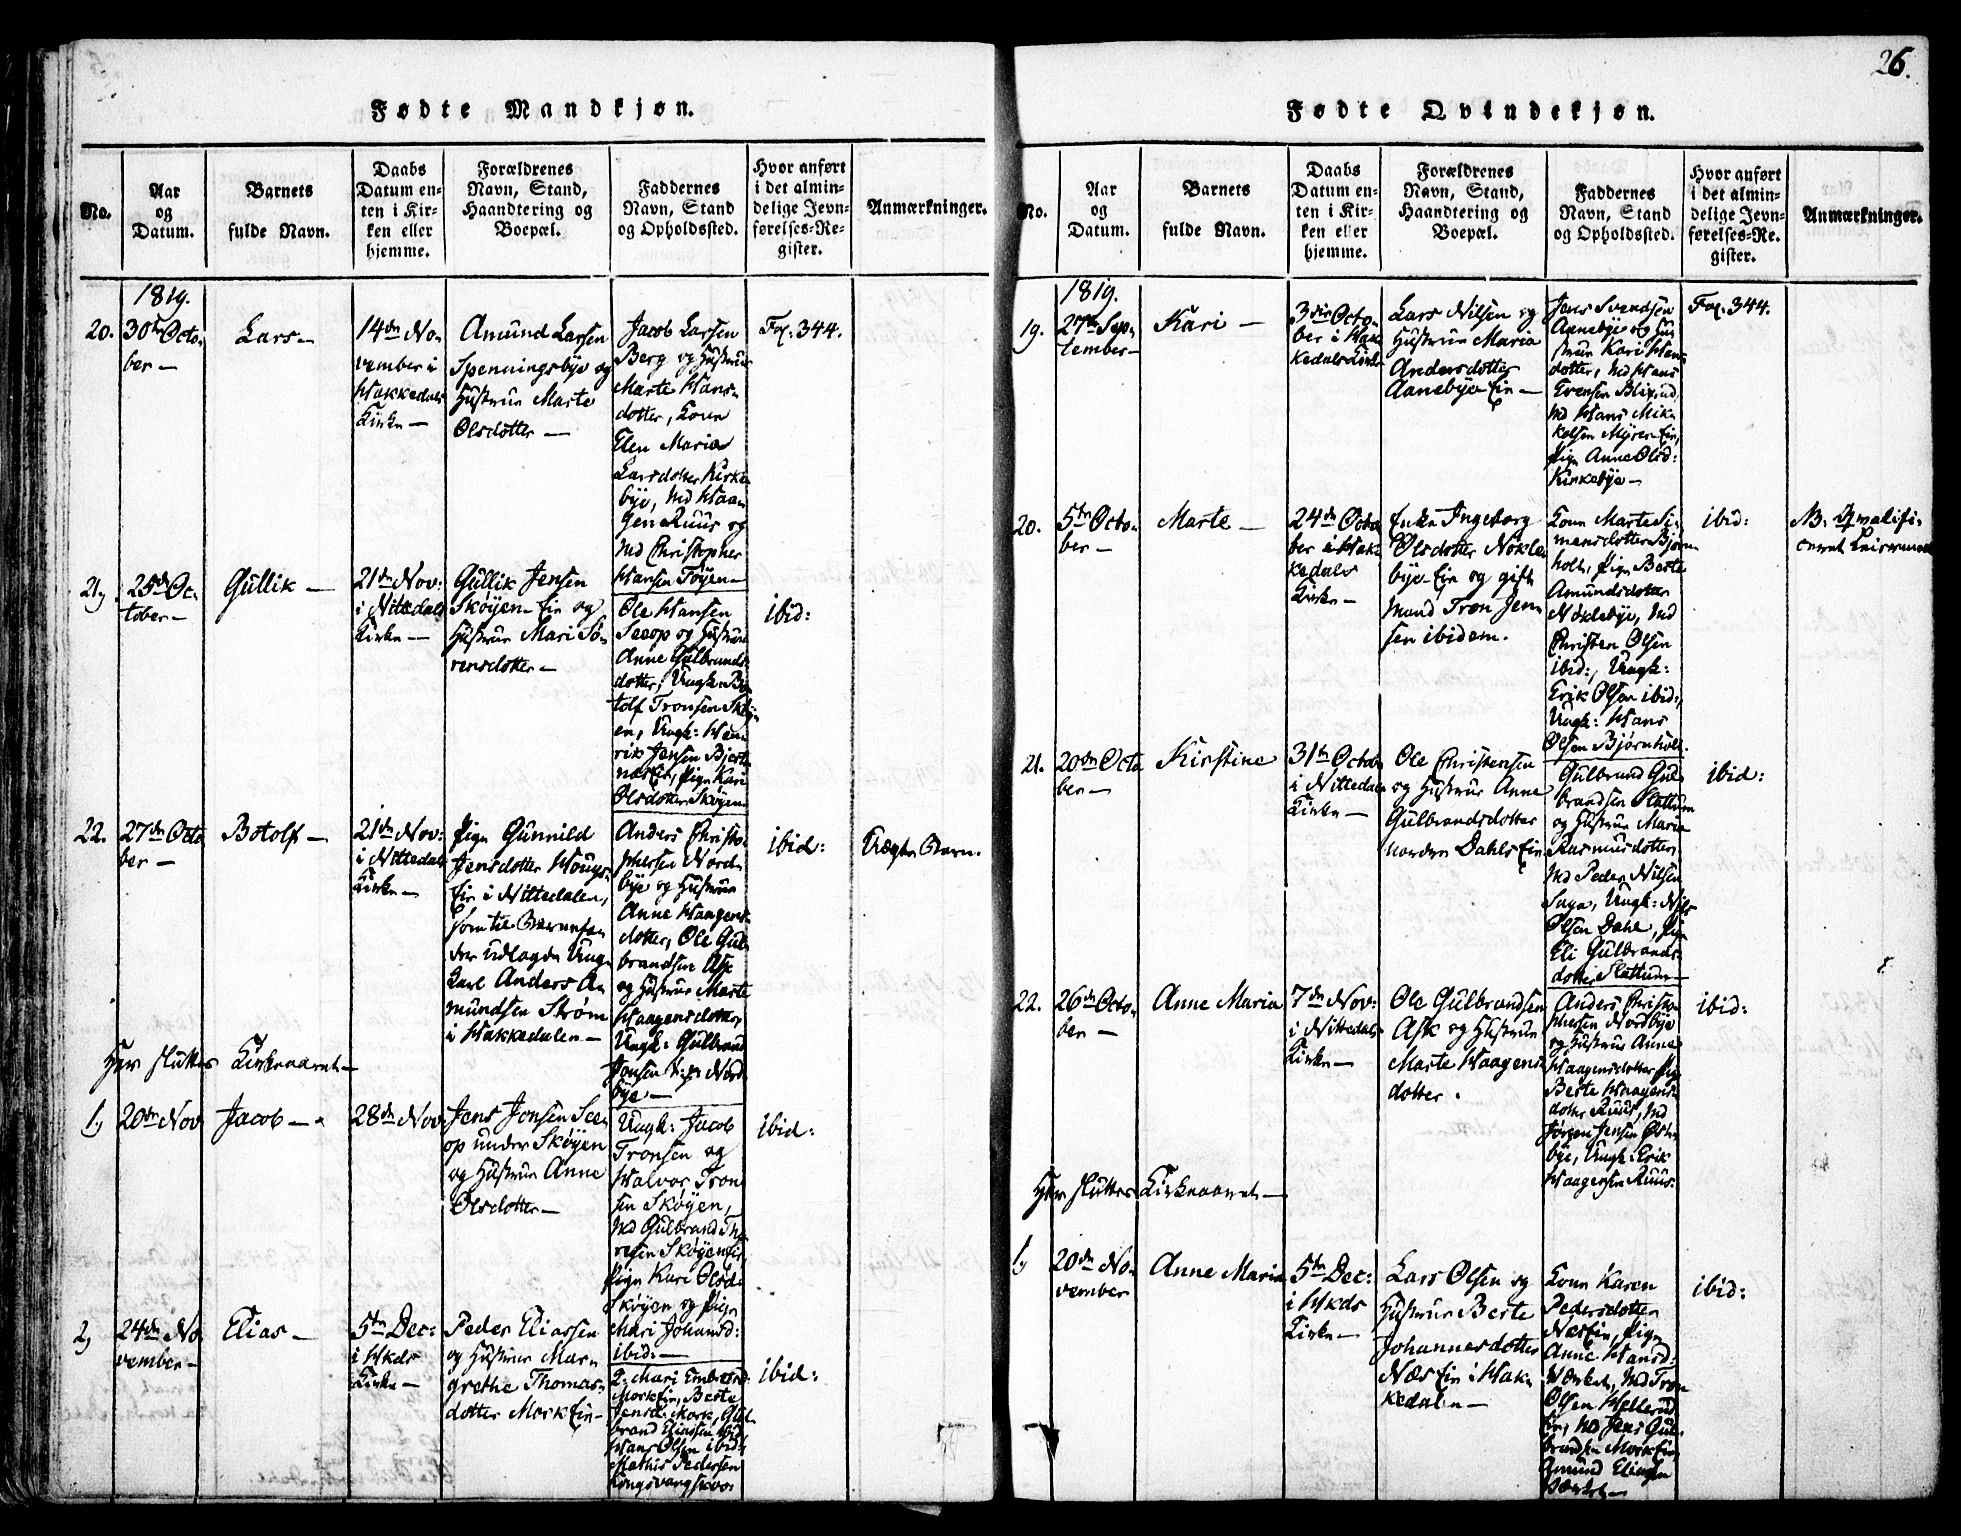 Fødte Mandkjøn.
No.
Aar
og
Datum.
Barnets
fulde Navn.
Daabs
Datum en-
ten i Kir-
ken eller
hjemme.
Forældrenes
Navn, Stand,
Haandtering og
Boepæl.
Faddernes
Navn, Stand
og Opholdssted.
Hvor anført
i det almin-
delige Jevn-
førelses-Re-
gister.
Anmærkninger.
1819.
20.
30te Octo-
ber —
Lars —
14de No-
vember i
Hakkedals
Kirke —
Amund Larsen
Spenningsbye og
Hustrue Marte
Olsdotter —
Jacob Larsen
Berg og Hustrue
Marte Hans-
dotter, Kone
Elen Maria
Larsdotter Kirke-
bye, Md Haa-
gen Ruus og
Md Christopher
Hansen Tøyen —
Fol. 344.
21,
25de Oc-
tober —
Gullik —
21de Nov:
i Nittedals
Kirke —
Gullik Jensen
Skøyen Eie og
Hustrue Mari Sø-
rensdotter —
Ole Hansen
Seeop og Hustrue
Anne Gulbrands-
dotter, Ungk: Bo-
tolf Tronsen Skøy-
en, Ungk: Hen-
rik Jensen Bjert-
næs Eie, Pige Kari
Olsdotter Skøyen
ibid:
22.
27de Octo-
ber —
Botolf —
21de Nov:
i Nittedals
Kirke —
Pige Gunnild
Jensdotter Houg-
Eie i Nittedalen,
som til Barnefa-
der udlagde Ung-
karl Anders A-
mundsen Strøm
i Hakkedalen —
Anders Christo-
phersen Nord-
bye og Hustrue
Anne Haagens-
dotter, Ole Gul-
brandsen Ask
og Hustrue Marte
Haagensdotter,
Ungk: Gulbrand
Jonsen Nord-
bye —
ibid:
Uægte Barn.
Her slutter Kirkeaaret —
1,
20de Nov
Jacob —
28de Nov
Jens Jonsen See-
op under Skøyen
og Hustrue Anne
Olsdotter —
Ungk: Jacob
Tronsen og
Halvor Tron-
sen Skøyen,
Md Gulbrand
Skøyen Eie,
Pige Kari Olsd:
Skøyen og Pige
Mari Johansd:
ibid: —
ibid:
2,
24de No-
vember —
Elias —
5te Dec:
i Hkds
Kirke —
Peder Eliassen
og Hustrue Mar-
grethe Thomas-
dotter Mork Eie —
Mork Eie, Berte
Jensd: Mork, Gul-
brand Eliassen ibid:
Hans Olsen ibid:
Mathis Pedersen
ibid:
26.
Fødte Qvindekjøn.
No.
Aar
og
Datum.
Barnets
fulde Navn.
Daabs
Datum en-
ten i Kir-
ken eller
hjemme.
Forældrenes
Navn, Stand,
Haandtering og
Boepæl.
Faddernes
Navn, Stand
og Opholdssted.
Hvor anført
i det almin-
delige Jevn-
førelses-Re-
gister.
Anmærkninger.
1819.
19.
27de Sep-
tember —
Kari —
3die Octo-
ber i Hak-
kedals Kirke
Lars Nilsen og
Hustrue Maria
Andersdotter
Aanebye Eie —
Jens Svendsen
Aanebye og Hu-
strue Kari Hans-
dotter, Md Hans
Evensen
Md Hans Mik-
kelsen Myren Eie,
Pige Anne Olsd:
Kirkebye —
Fol. 344.
20.
5te Octo-
ber —
Marte —
24de Octo-
ber i Hak-
kedals
Kirke —
Enke Ingeborg
Olsdotter Nøkle-
bye Eie og gift
Mand Tron Jen-
sen ibidem.
Kone Marte Si-
mensdotter Bjørn-
holt, Pige Berte
Amundsdotter
Nøklebye, Md
Christen Olsen
ibid:, Ungk:
Erik Olsen ibid:,
Ungk: Hans
Olsen Bjørnholt.
ibid:
NB. Qvalifi-
ceret Leiermaal
21.
20de Octo-
ber —
Kirstine
31te Octob
i Nittedals
Kirke —
Ole Christensen
og Hustrue Anne
Gulbrandsdotter
nordre Dahls Eie
Gulbrand Gul-
brandsen Slattum
og Hustrue Maria
Rasmusdotter
Md Peder Nilsen
Ungk: Nils
Olsen Dahl, Pige
Eli Gulbrands-
dotter Slattum —
ibid:
22.
26de Octo-
ber —
Anne Maria
7de Nov:
i Nittedals
Kirke —
Ole Gulbrandsen
Ask og Hustrue
Marte Haagens-
dotter.
Anders Christo-
phersen Nordbye
og Hustrue Anne
Haagensdotter Pige
Berte Haagens-
dotter Ruus, Md
Jørgen Jensen Østen-
bye, Ungk: Erik
Haagensen Ruus.
ibid:
Her slutter Kirkeaaret —
1,
20de No-
vember
Anne Maria
5te Dec:
i Hkds
Kirke —
Lars Olsen og
Hustrue Berte
Johannesdotter
Næs Eie i Hak-
kedalen —
Kone Karen
Pedersdotter
Næs Eie, Pige
Anne Hansd:
Værket, Md Tron
Olsen Hellerud
Eie, Md Jens Gul-
brandsen Mork Eie
Amund
Værket —
ibid: